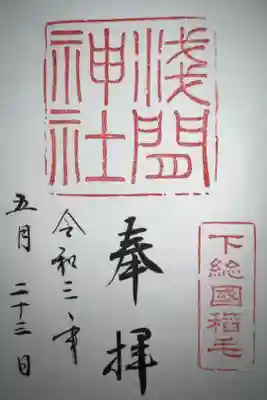 下総國稲毛
奉拝
浅間
神社
令和三年
五月二十三日